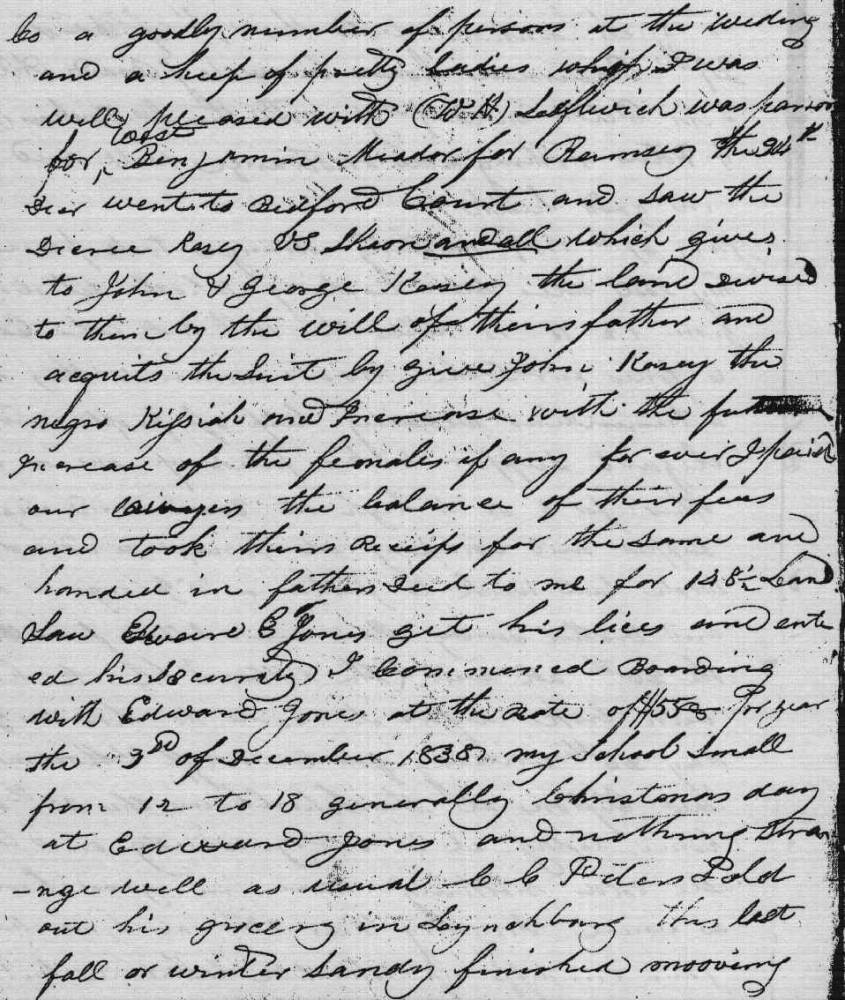 Co a goodly number of persons at the weding
and a heep of pretty ladies which I was
well pleased with (W. H.) Leftwich was parson
for, Benjamin Meador for Ramsey the 24th
Decr went to Bedford Court and saw the
Decree Kasey VS Skeen and all which gives
to John & George Kasey the land devised
to them by the will of theirs father and
acquits the Suit by give John Kasey the
negro Kissiah and Increase with the
Increase of the females if any for ever I paid
our lawyers the balance of their fees
and took theirs Receips for the same and
handed in fathers deed to me for 148½ Land
Saw Edward E Jones get his lices and ente
ed his Security I Commenced Boarding
with Edward Jones at the Rate of $55 Per year
the 3rd of December 1838 my School Small
from 12 to 18 generally Christmas day
at Edward Jones and nothing stran
-nge well as usual C C Peters Sold
out his grocery in Lynchburg this last
fall or winter Sandy finished mooving